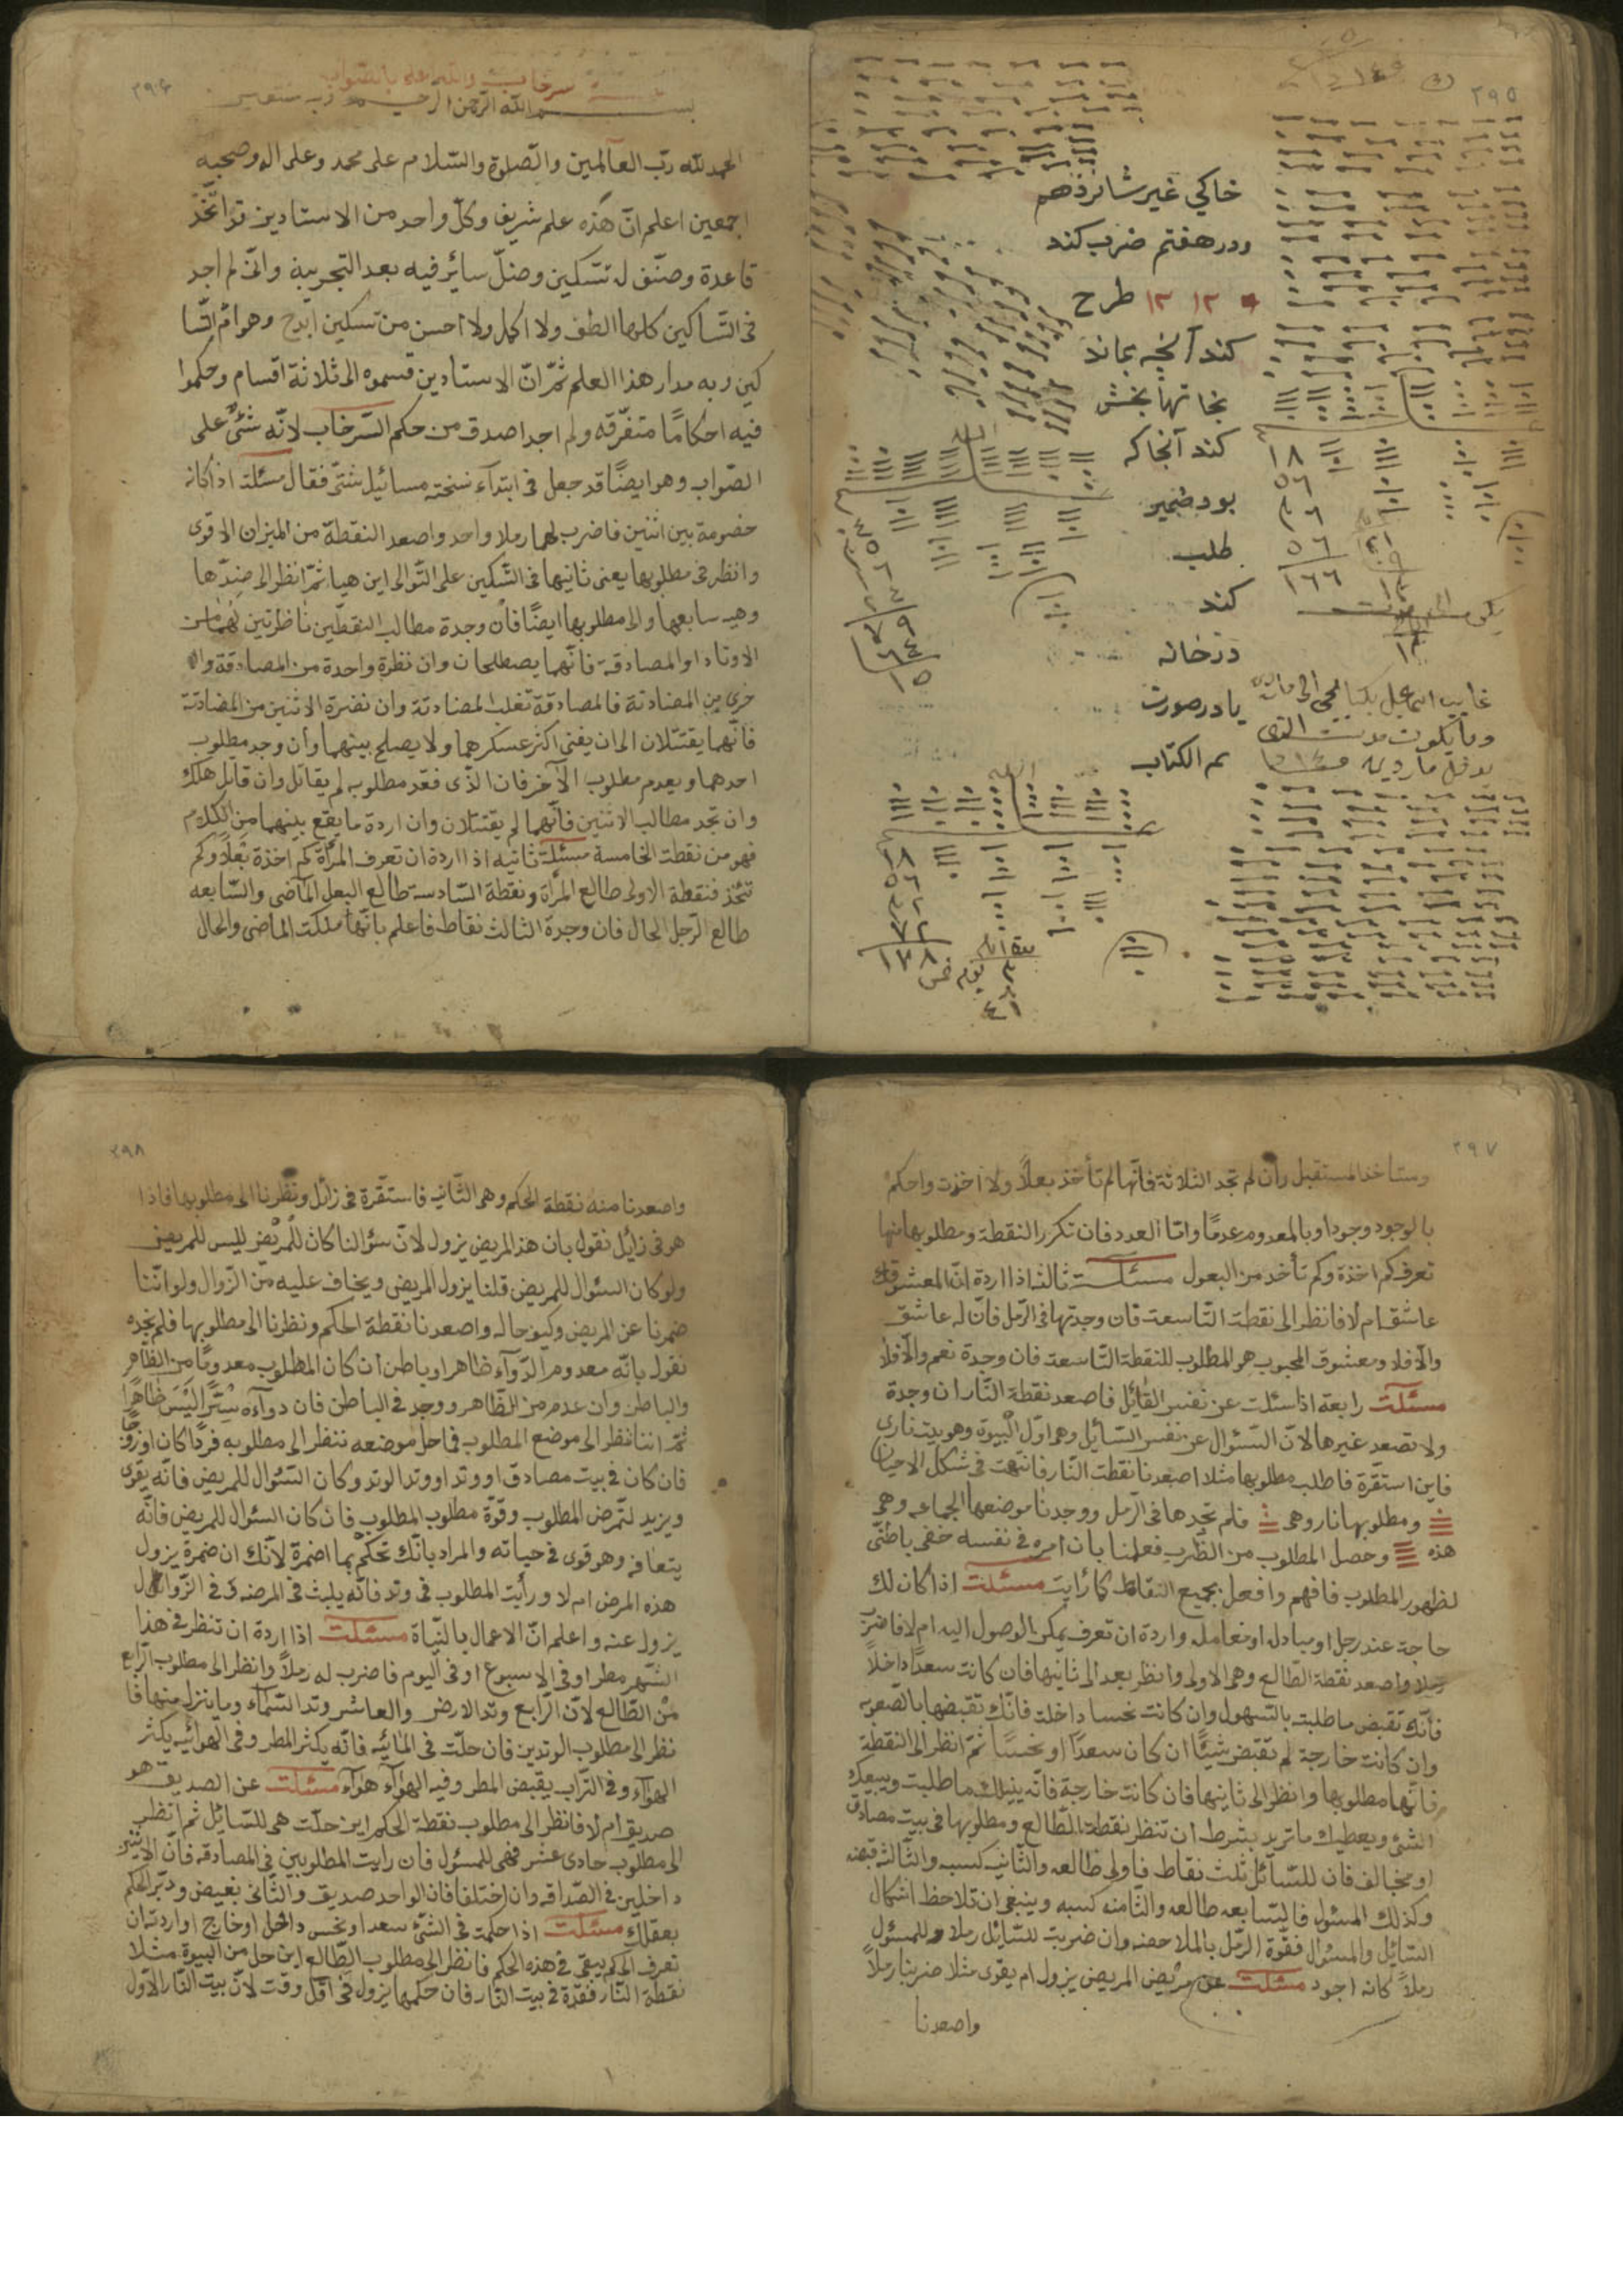 ٢٩٥
خاكي غير شانزدهم
ودر هفتم ضرب كند
١٢ ١٢ طرح
كند آنچه بماند
بخانها بخش
كند آنجا كه
بود ضمير
طلب
كند
در خانه
يا در صورت
تم الكتاب
١٨
٥٦
١٦٦
١٣٨
٢٩٦
سرخاب والله اعلم بالصواب
بسم الله الرحمن الرحيم وبه نستعين
الحمد لله رب العالمين والصلوة والسلام على محمد وعلى اله وصحبه
اجمعين اعلم انّ هذه علم شريف وكلّ واحد من الاستادين قد اتخذ
قاعدة وصنّف له تسكين وضلّ سائر فيه بعد التجربية وانى لم اجد
فى التساكين كلها الطف ولا اكمل ولا احسن من تسكين ابدح وهو امّ التسا
كين وبه مدار هذا العلم ثمّ انّ الاستادين قسموه الى ثلاثة اقسام وحكموا
فيه احكامًا متفرّقه ولم اجد اصدق من حكم السرخاب لانّه شئ على
الصّواب وهو ايضًا قد جعل فى ابتدآء نسخته مسائيل شتّى فقال مسئلة اذا كانه
خصومة بين اثنين فاضرب لهما رملا واحد واصعد النقطة من الميزان الاقوى
وانظر فى مطلوبها يعنى ثانيها فى التسكين على التوالى اين هيا ثمّ انظر الى ضدّها
وهيه سابعها والى مطلوبها ايضًا فان وجدة مطالب النقطتين ناظرتين لهما من
الاوتاد او المصادقة فانّهما يصطلحان وان نظرة واحدة من المصادقة والا
خرى من المضادتة فالمصادقة تغلب المضادتة وان نضرة الاثنين من المضادتة
فانّهما يقتتلان الى ان يفنى اكثر عسكرهما ولا يصلح بينهما وان وجد مطلوب
احدهما ويعدم مطلوب الآخر فان الذّى فقد مطلوبه لم يقاتل وان قاتل هلك
وان تجد مطالب الاثنين فانّهما لم يقتتلان وان اردة ما يقع بينهما من الكلام
فهو من نقطة الخامسة مسئلة ثانيه اذا اردة ان تعرف المرأة كم اخذة بعلاً وكم
تتخذ فنقطة الاولى طالع المرأة ونقطة السّادسة طالع البعل الماضى والسّابعه
طالع الرّجل الحال فان وجدة الثالث نقاط فاعلم بانّها ملكت الماضى والحال
٢٩٧
وستاخذ المستقبل وان لم تجد الثلاثة فانّها لم تأخذ بعلاً ولا اخذت واحكم
بالوجود وجود او بالمعدوم عدمًا وامّا العدد فان تكرر النقطة ومطلوبها منها
تعرف كم اخذة وكم تأخد من البعول مسئلة ثالثة اذا اردة انّ المعشوق له
عاشق ام لا فانظر الى نقطة التّاسعة فان وجدتها فى الرّمل فانّ له عاشق
والّا فلا ومعشوق المحبوب هو المطلوب للنقطة التّاسعة فان وجدة نعم والّا فلا
مسئلت رابعة اذا سئلت عن نفس القائل فاصعد نقطة النّار ان وجدة
ولا تصعد غيرها لانّ السّئوال عن نفس السّائل وهو اوّل البيوة وهو بيت نارى
فاين استقرّة فاطلب مطلوبها مثلا اصعدنا نقطة النّار فانتهت فى شكل الاحيان
ومطلوبها نار وهى فلم تجدها فى الرّمل ووجدنا موضعها الجماعه وهى
هذه وحصل المطلوب من الضّرب فعلمنا بان امره فى نفسه خفى باطنّى
لظهور المطلوب فافهم وافعل بجميع النقاط كما رايت مسئلت اذا كان لك
حاجة عند رجل او مبادله او معامله واردة ان تعرف يمكن الوصول اليه ام لا فاضرب
رملا واصعد نقطة الطّالع وهى الاولى وانظر بعد الى ثانيها فان كانت سعدًا داخلاً
فانّك تقبض ما طلبته بالتسهول وان كانت نحسا داخلة فانّك تقبضها بالصّعوبه
وان كانت خارجة لم تقبض شيئًا ان كان سعدًا او نحسًا ثمّ انظر الى النقطة
فانّها مطلوبها وانظر الى ثانيها فان كانت خارجة فانّه ينيلك ما طلبت ويبيعك
الشئ ويعطيك ما تريد بشرط ان تنظر نقطة الطّالع ومطلوبها فى بيت مصادق
او مخالف فان للسّائل ثلث نقاط فاولى طالعه والثانيه كسبه والثّالثة قبضه
وكذلك المسئول فالسّابعه طالعه والثامنه كسبه وينبغى ان تلاحظ اشكال
السّائل والمسئول فقوّة الرّمل بالملاحضه وان ضربت للسّائل رملا وللمسئول
رملاً كانه اجود مسئلت عن مرّض المريض يزول ام يقوى مثلا ضربنا رملاً
واصعدنا
٢٩٨
واصعدنا منه نقطة الحكم وهى الثّانيه فاستقرّة فى زائل ونظرنا الى مطلوبها فاذا
هو فى زايل نقول بان هذ المريض يزول لانّ سئوالنا كان للمرّض ليس للمريض
ولو كان السئوال للمريض قلنا يزول المريض ويخاف عليه من الزّوال ولو اننا
ضمرنا عن المريض وكيو حاله واصعدنا نقطة الحكم ونظرنا الى مطلوبها فلم نجده
نقول بانّه معدوم الدّوآء ظاهر او باطن ان كان المطلوب معدومًا من الظاهر
والباطن وان عدم من الظّاهر ووجد فى الباطن فان دوآءه سِرًّا ليس ظاهرًا
ثمّ اننا ننظر الى موضع المطلوب فما حل موضعه ننظر الى مطلوبه فردًا كان او زوجًا
فان كان فى بيت مصادق او وتد او وتد الوتد وكان السّئوال للمريض فانّه يقوى
ويزيد لتمرض المطلوب وقوّة مطلوب المطلوب فان كان السئول للمريض فانّه
يتعافه وهو قوى فى حياته والمراد بانّك تحكم بما اضمرة لانّك ان ضمرة يزول
هذه المرض ام لا ورأيت المطلوب فى وتد فانّه يلبث فى المرض وفى الزّوائل
يزول عنه واعلم انّ الاعمال بالنّياة مسئلت اذا اردة ان تنظر فى هذا
الشّهر مطر او فى الاسبوع او فى اليوم فاضرب له رملاً وانظر الى مطلوب الرّابع
من الطّالع لانّ الرّابع وتد الارض والعاشر وتد السّماء وما ينزل منها فا
نظر الى مطلوب الوتدين فان حلّت فى المائيّه فانّه يكثر المطر وفى الهوائيّه يكثر
الهوآء وفى التّراب يقبض المطر وفيه الهوآء هوآء مسئلت عن الصديق هو
صديق ام لا فانظر الى مطلوب نقطة الحكم اين حلّت هى للسّائل ثم انظر
الى مطلوب حادى عشر فهى للمسئول فان رايت المطلوبين فى المصادقه فانّ الاثنين
داخلين فى الصّداقه وان اختلفا فان الواحد صديق والثّانى بغيض ودبّر الحكم
بعقلك مسئلت اذا حكمت فى الشّئ سعد او نحس داخل او خارج او اردت ان
تعرف الحكم يبقى فى هذه الحكم فانظر الى مطلوب الطّالع اين حل من البيوة مثلا
نقطة النّار فنقرّة فى بيت النّار فان حكمها يزول فى اقل وقت لانّ بيت النّار الاوّل